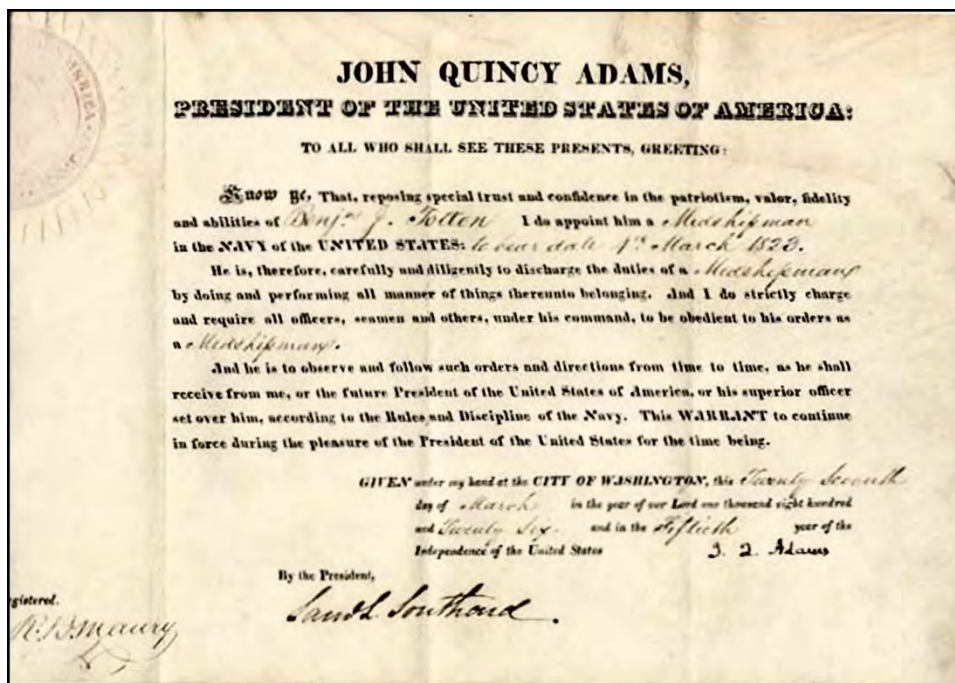 AMERICA
JOHN QUINCY ADAMS,
PRESIDENT OF THE UNITED STATES OF AMERICA:
TO ALL WHO SHALL SEE THESE PRESENTS, GREETING:
Know Ye, That, reposing special trust and confidence in the patriotism, valor, fidelity
and abilities of Benjn. J. Totten I do appoint him a Midshipman
in the NAVY of the UNITED STATES: to bear date 4th March 1823.
He is, therefore, carefully and diligently to discharge the duties of a Midshipman
by doing and performing all manner of things thereunto belonging. And I do strictly charge
and require all officers, seamen and others, under his command, to be obedient to his orders as
a Midshipman.
And he is to observe and follow such orders and directions from time to time, as he shall
receive from me, or the future President of the United States of America, or his superior officer
set over him, according to the Rules and Discipline of the Navy. This WARRANT to continue
in force during the pleasure of the President of the United States for the time being.
GIVEN under my hand at the CITY OF WASHINGTON, this Twenty Seventh
day of March in the year of our Lord one thousand eight hundred
and Twenty Six and in the Fiftieth year of the
Independence of the United States J. Q. Adams
By the President,
Saml L. Southard.
gistered.
R. B. Maury